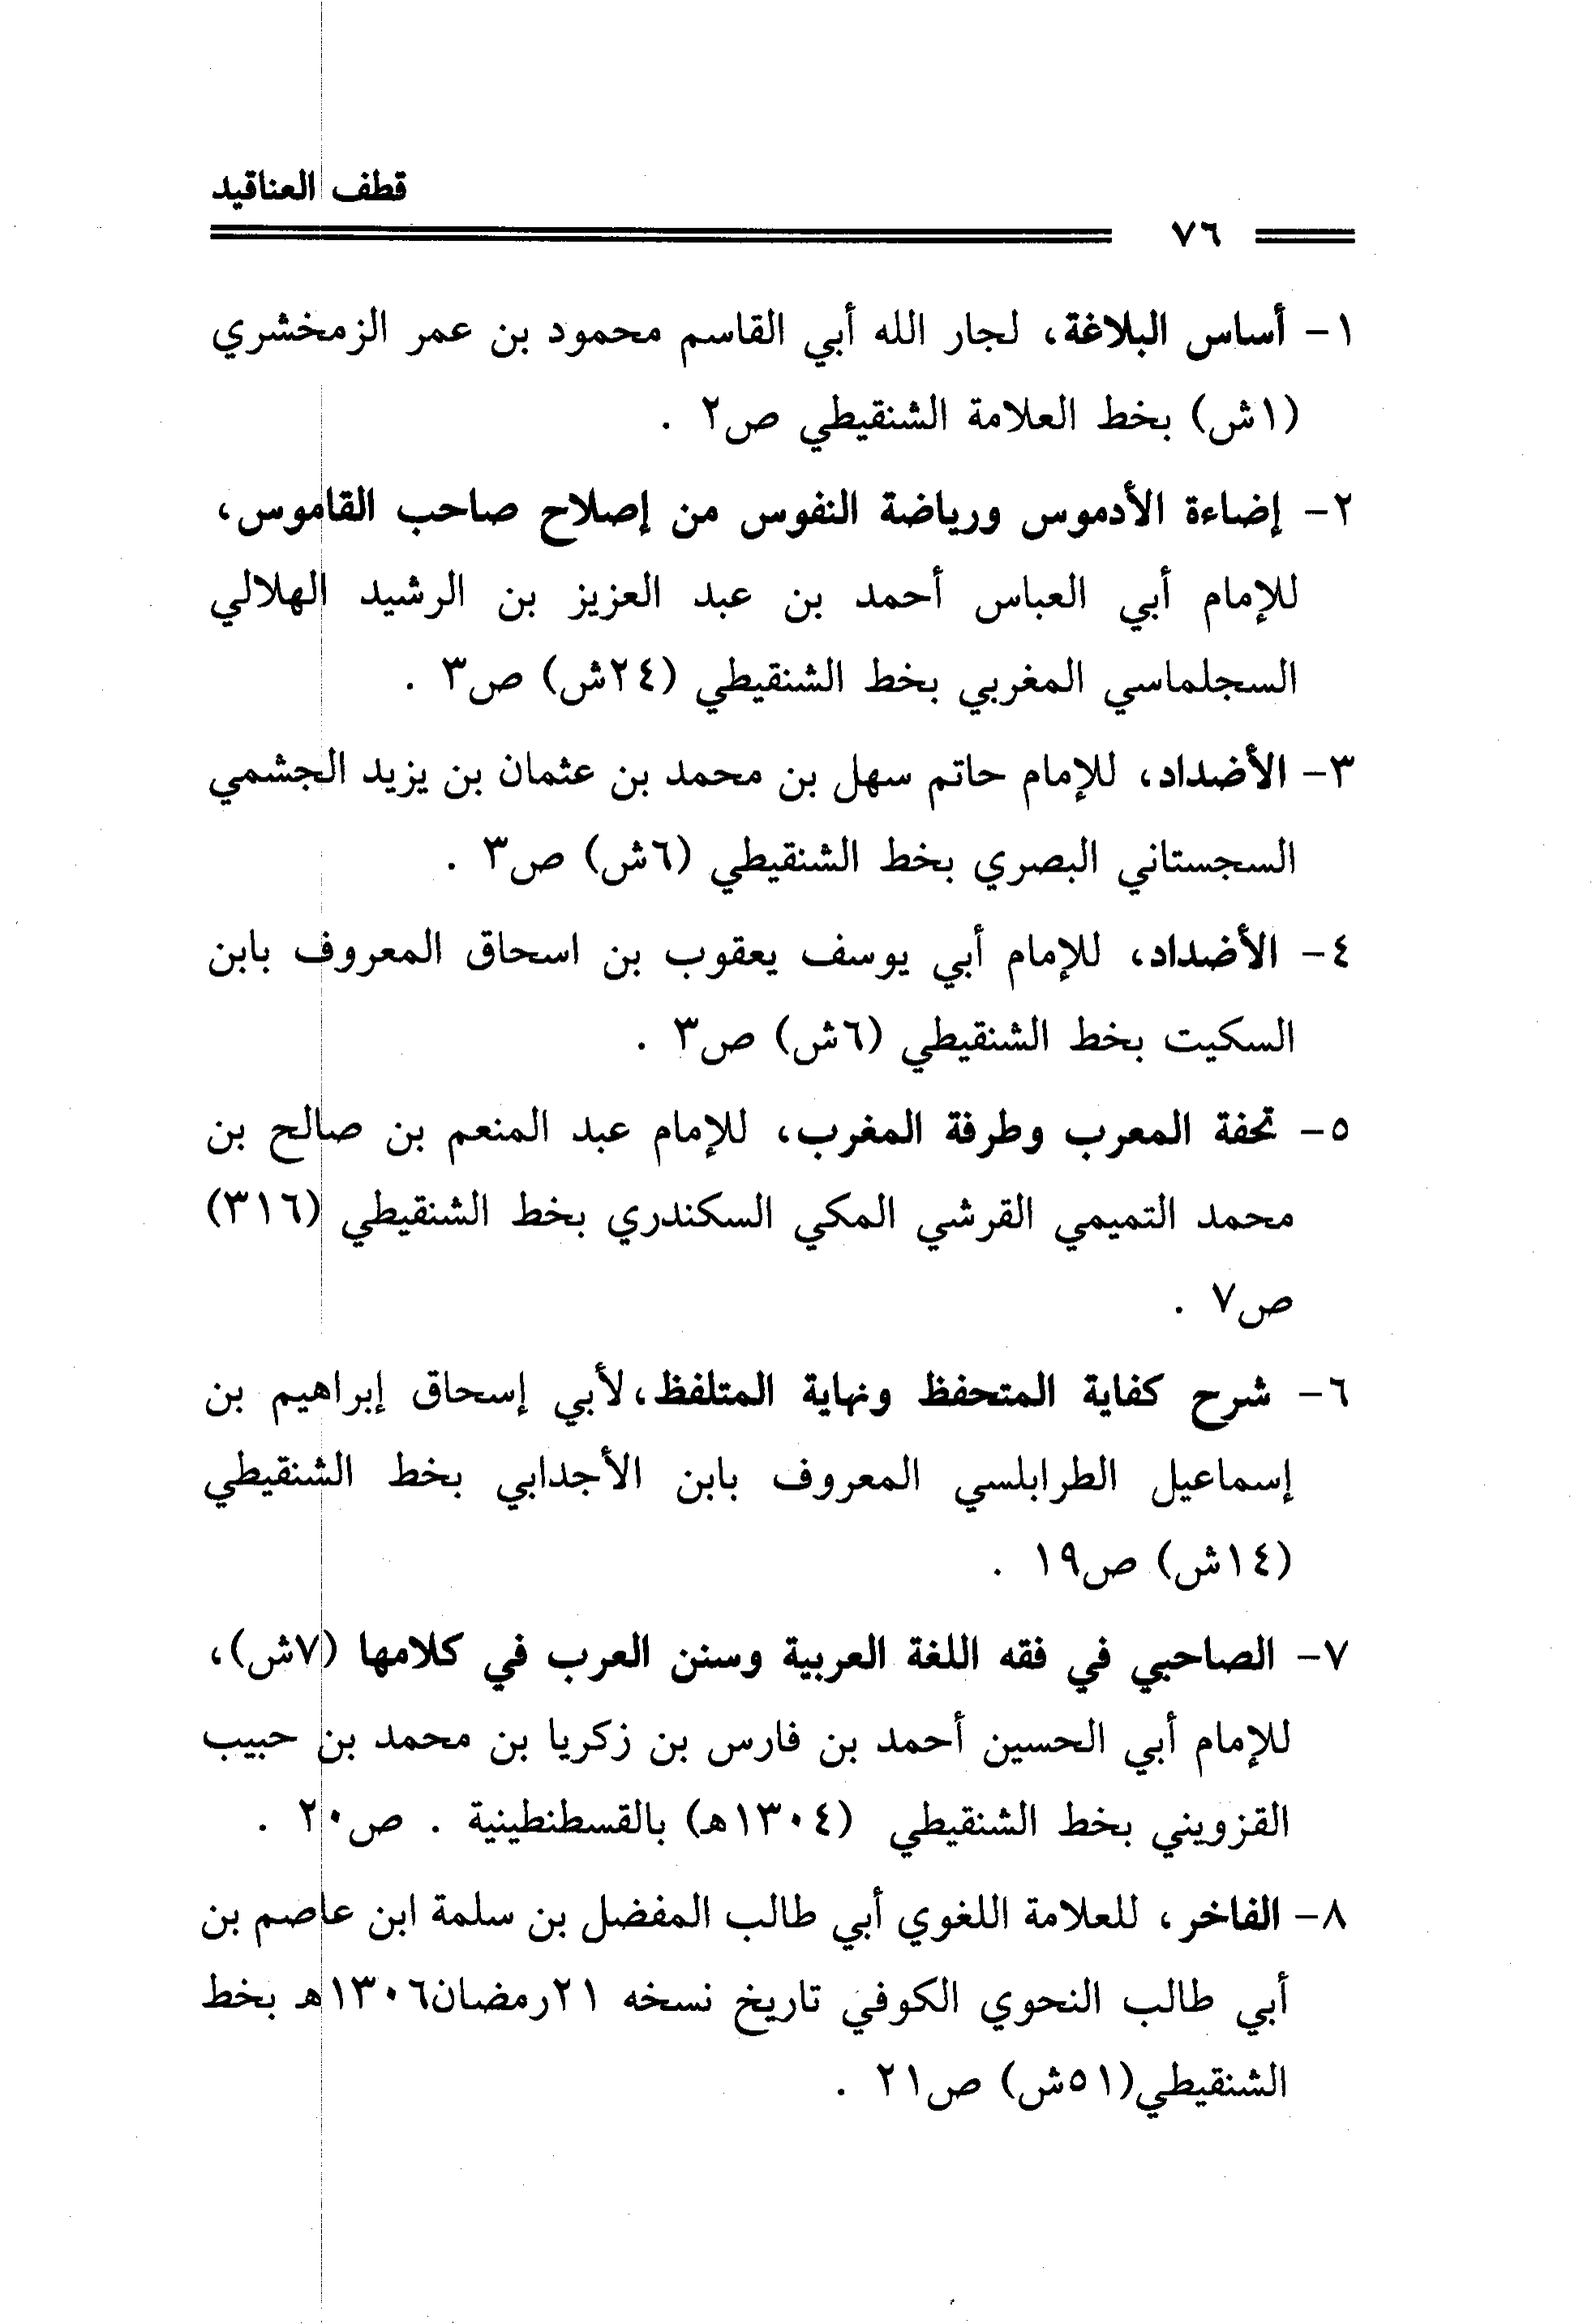 قطف العناقيد
٧٦
١- أساس البلاغة، لجار الله أبي القاسم محمود بن عمر الزمخشري
(١ش) بخط العلامة الشنقيطي ص٢ .
٢- إضاءة الأدموس ورياضة النفوس من إصلاح صاحب القاموس،
للإمام أبي العباس أحمد بن عبد العزيز بن الرشيد الهلالي
السجلماسي المغربي بخط الشنقيطي (٢٤ش) ص٣ .
٣- الأضداد، للإمام حاتم سهل بن محمد بن عثمان بن يزيد الجشمي
السجستاني البصري بخط الشنقيطي (٦ش) ص٣ .
٤- الأضداد، للإمام أبي يوسف يعقوب بن اسحاق المعروف بابن
السكيت بخط الشنقيطي (٦ش) ص٣ .
٥- تحفة المعرب وطرفة المغرب، للإمام عبد المنعم بن صالح بن
محمد التميمي القرشي المكي السكندري بخط الشنقيطي (٣١٦)
ص٧ .
٦- شرح كفاية المتحفظ ونهاية المتلفظ، لأبي إسحاق إبراهيم بن
إسماعيل الطرابلسي المعروف بابن الأجدابي بخط الشنقيطي
(١٤ش) ص١٩ .
٧- الصاحبي في فقه اللغة العربية وسنن العرب في كلامها (٧ش)،
للإمام أبي الحسين أحمد بن فارس بن زكريا بن محمد بن حبيب
القزويني بخط الشنقيطي (١٣٠٤هـ) بالقسطنطينية . ص٢٠ .
٨- الفاخر، للعلامة اللغوي أبي طالب المفضل بن سلمة ابن عاصم بن
أبي طالب النحوي الكوفي تاريخ نسخه ٢١رمضان١٣٠٦هـ بخط
الشنقيطي(٥١ش) ص٢١ .